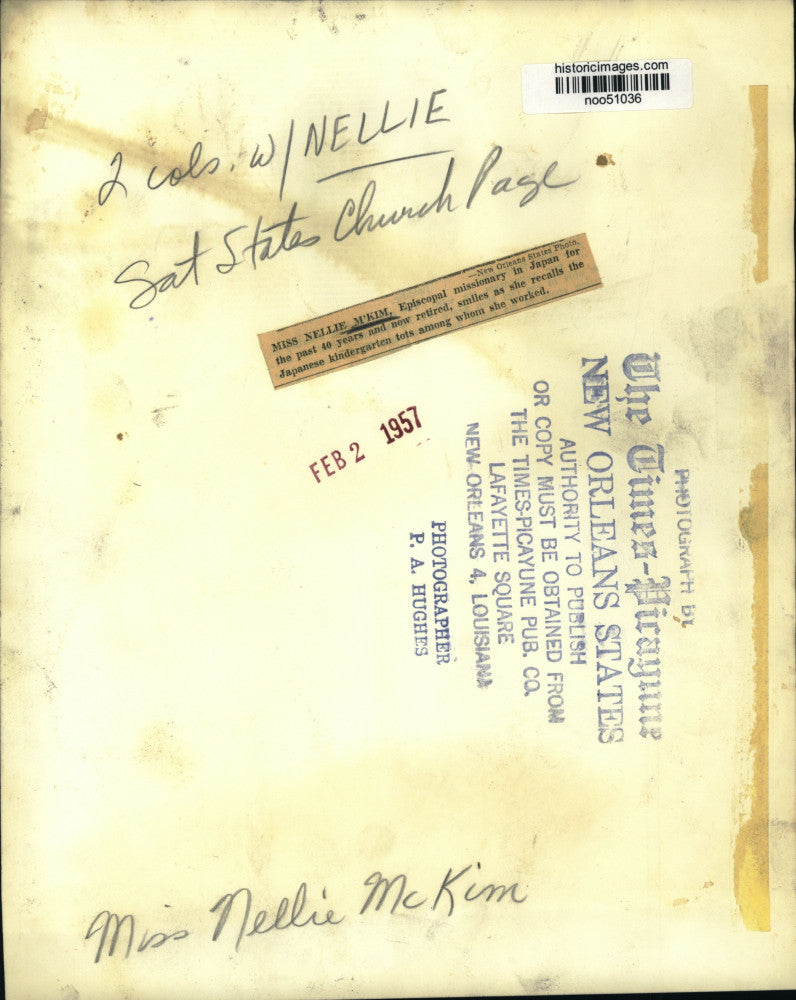 historicimages.com
noo51036
2 cols. w/ NELLIE
Sat States Church Page
—New Orleans States Photo.
MISS NELLIE M'KIM, Episcopal missionary in Japan for
the past 40 years and now retired, smiles as she recalls the
Japanese kindergarten tots among whom she worked.
FEB 2 1957
PHOTOGRAPH BY
The Times-Picayune
NEW ORLEANS STATES
AUTHORITY TO PUBLISH
OR COPY MUST BE OBTAINED FROM
THE TIMES-PICAYUNE PUB. CO.
LAFAYETTE SQUARE
NEW ORLEANS 4, LOUISIANA
PHOTOGRAPHER
P. A. HUGHES
Miss Nellie McKim